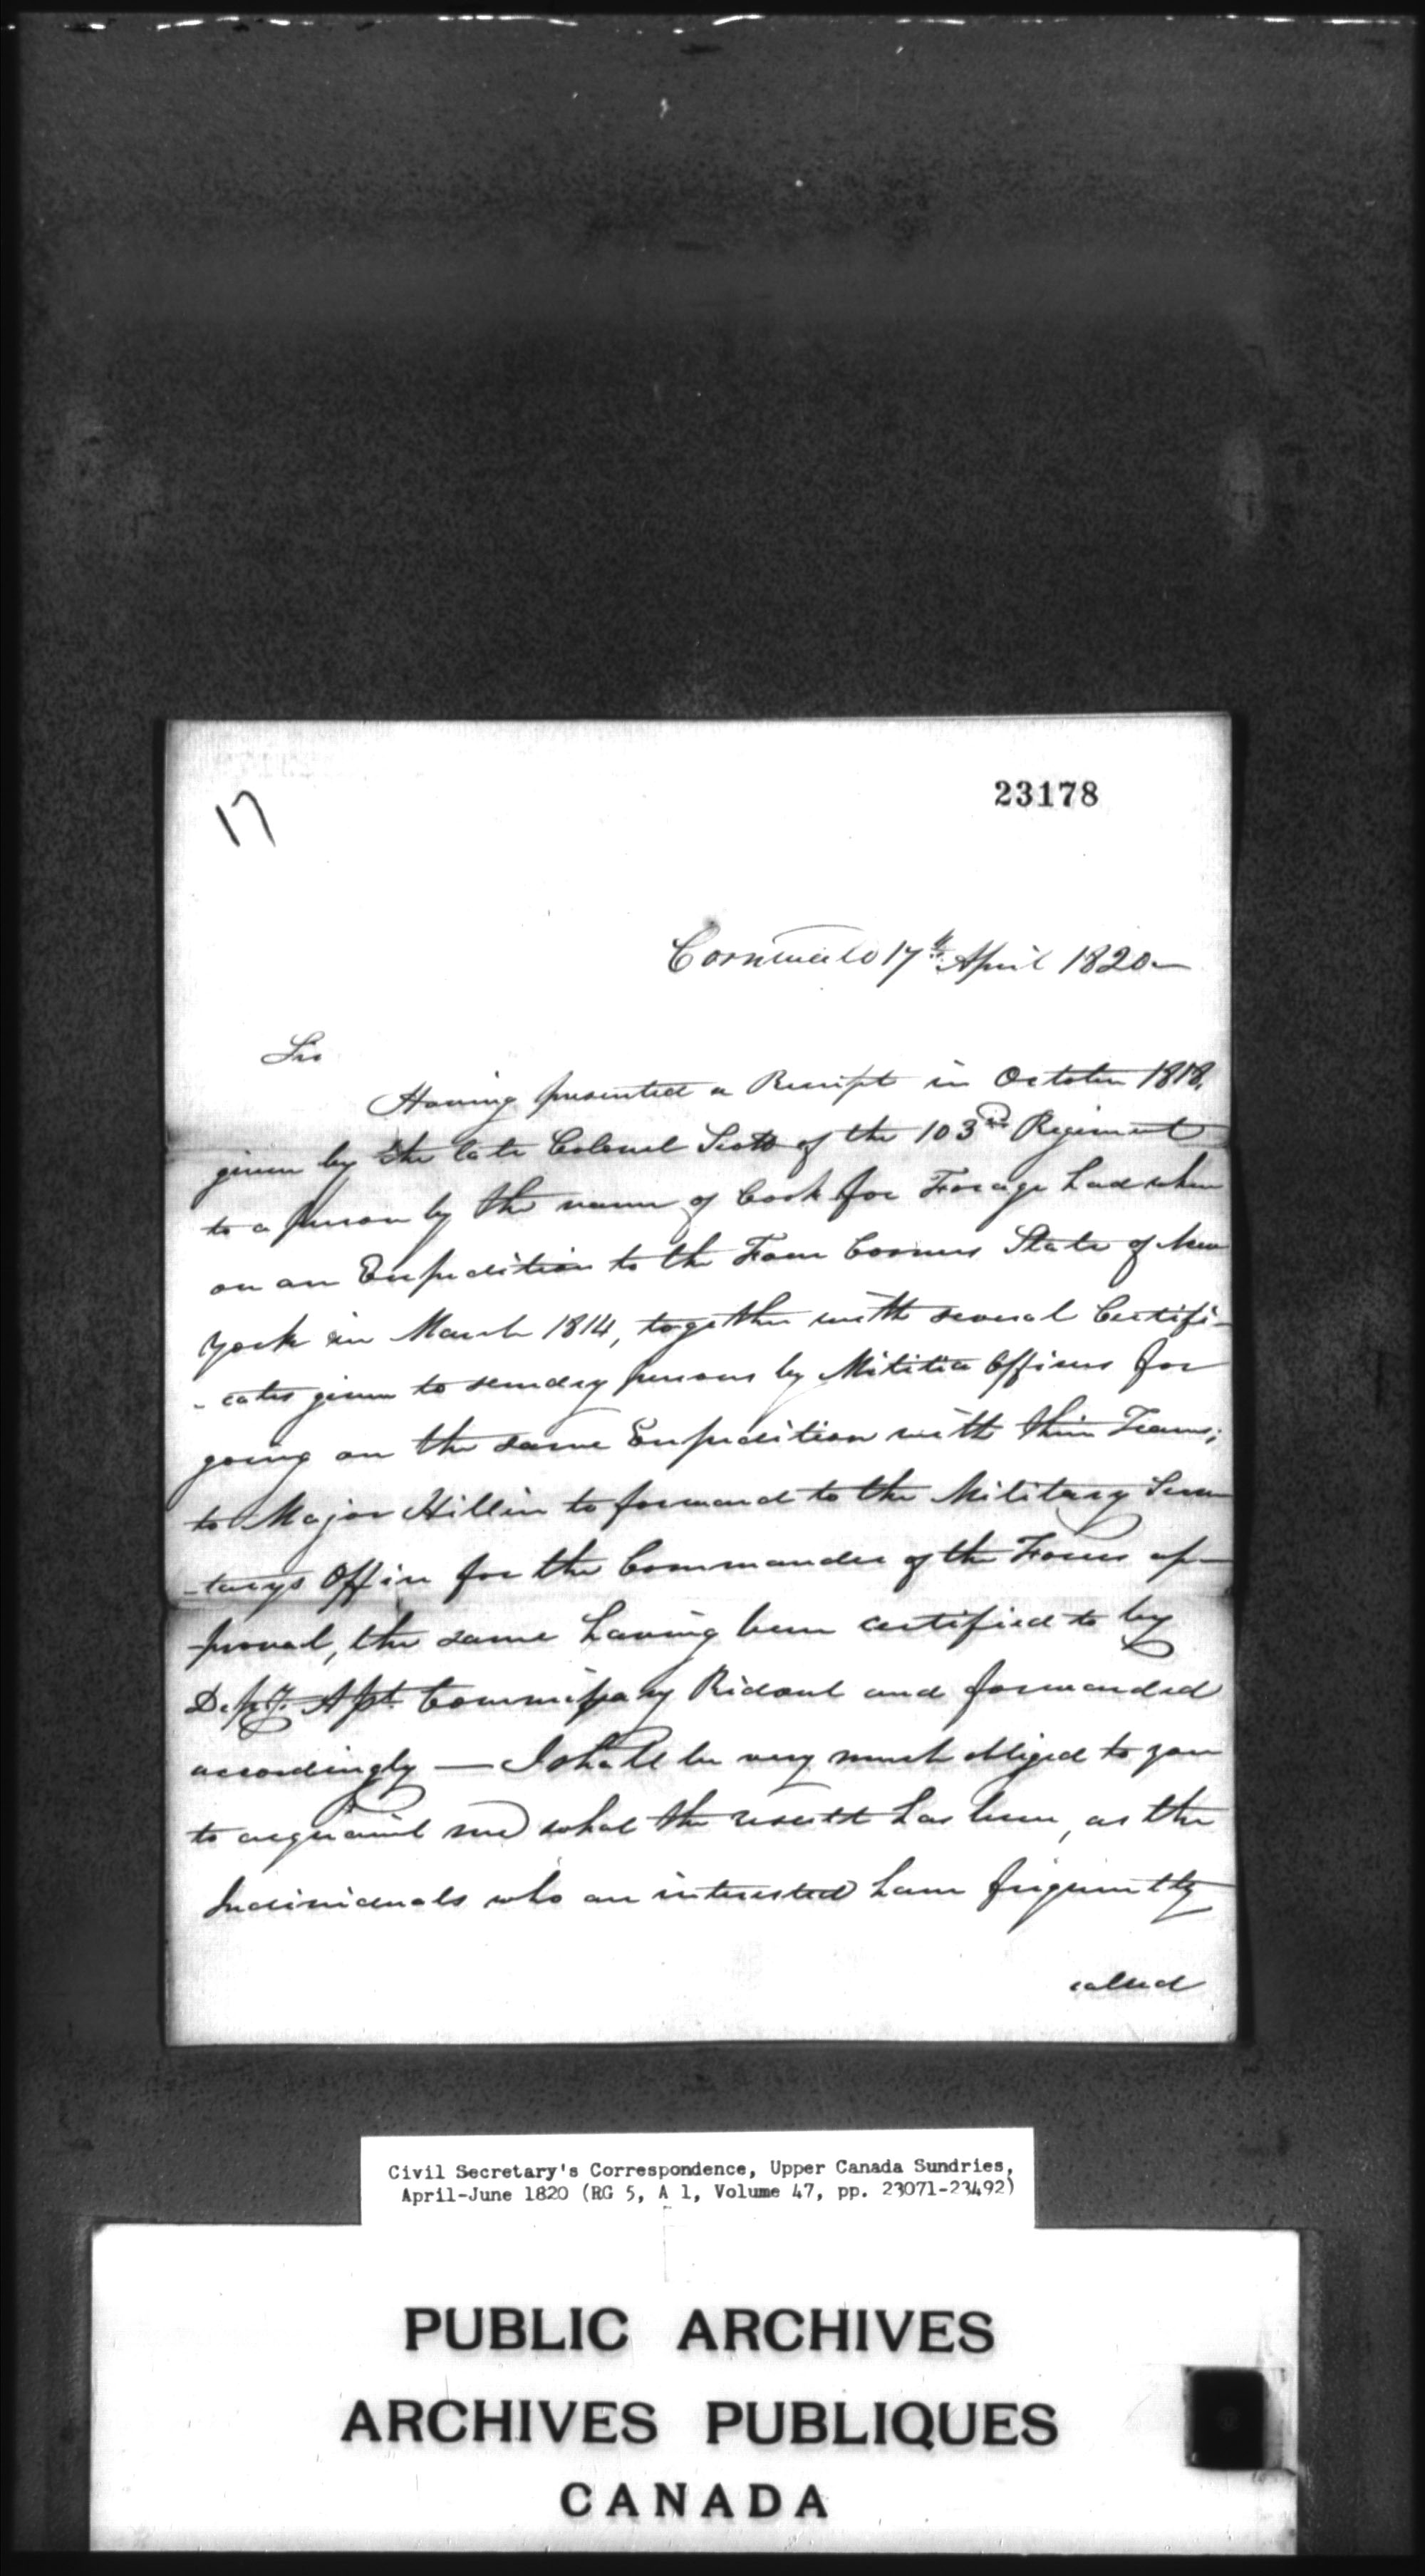 17
23178
Cornwall 17th April 1820
Sir
Having presented a Receipt in October 1818,
given by the late Colonel Scott of the 103rd Regiment
to a person by the name of Cook for Forage had when
on an Expedition to the Four Corners State of New
York in March 1814, together with several Certifi-
-cates given to sundry persons by Militia Officers for
going on the same Expedition with their Teams;
to Major Hillier to forward to the Military Secre
-tarys Office for the Commander of the Forces ap-
-proval, the same having been certified to by
Depy. Asst. Commissary Ridout and forwarded
accordingly — I shall be very much obliged to you
to acquaint me what the result has been, as the
Individuals who are interested have frequently
called
Civil Secretary's Correspondence, Upper Canada Sundries,
April-June 1820 (RG 5, A 1, Volume 47, pp. 23071-23492)
PUBLIC ARCHIVES
ARCHIVES PUBLIQUES
CANADA